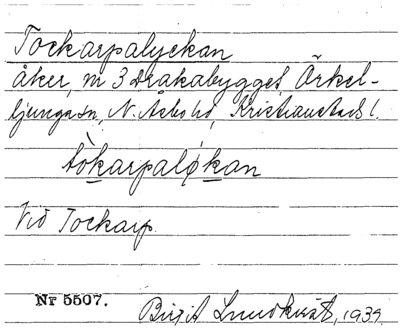 Tockarpalyckan
åker, m 3 Dråkabygget, Örkel-
ljunga sn, N. Åsbo hd, Kristianstads l.
tòkarpaløkan
Vid Tockarp.
Nr 5507.
Birgit Lundkvist, 1939.